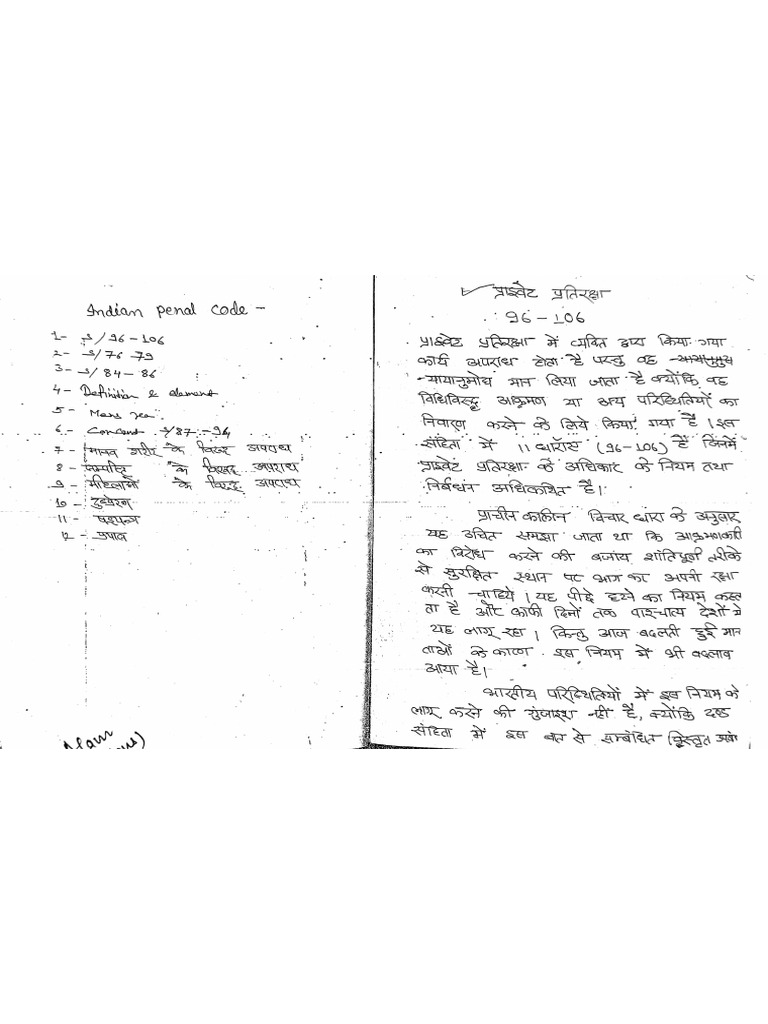 Indian Penal Code -
1- S/96-106
2- S/76-79
3- S/84-86
4- Definition & element
5- Mens rea.
6- Concent S/87-94
7- मानव शरीर के विरुद्ध अपराध
8- सम्पत्ति के विरुद्ध अपराध
9- महिलाओं के विरुद्ध अपराध
10- दुष्प्रेरण
11- षडयन्त्र
12- अपवाद
Alam
प्राइवेट प्रतिरक्षा
96-106
प्राइवेट प्रतिरक्षा में व्यक्ति द्वारा किया गया
कार्य अपराध होता है परन्तु वह
न्यायानुमोध मान लिया जाता है क्योंकि वह
विधिविरुद्ध आक्रमण या अन्य परिस्थितियों का
निवारण करने के लिये किया गया है। इस
संहिता में 11 धाराएँ (96-106) हैं जिनमें
प्राइवेट प्रतिरक्षा के अधिकार के नियम तथा
निर्बंधन अधिकथित है।
प्राचीन कालीन विचार धारा के अनुसार
यह उचित समझा जाता था कि आक्रमणकारी
का विरोध करने की बजाय शांतिपूर्ण तरीके
से सुरक्षित स्थान पर भागकर अपनी रक्षा
करनी चाहिये। यह पीछे हटने का नियम कहला
ता है और काफी दिनों तक पाश्चात्य देशों मे
यह लागू रहा। किन्तु आज बदलती हुई मान्
ताओं के कारण इस नियम में भी बदलाव
आया है।
भारतीय परिस्थितियों में इस नियम को
लागू करने की गुंजाइश नहीं है, क्योंकि दण्ड
संहिता में इस बात से सम्बंधित विस्तृत